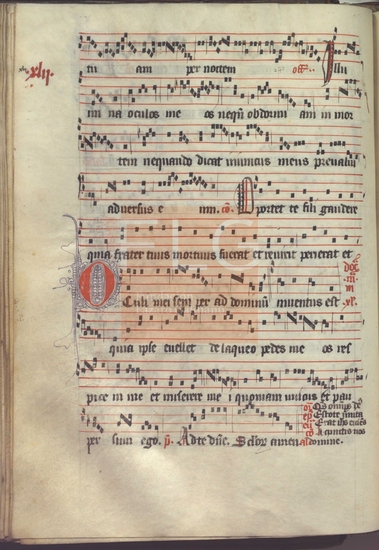 xlij
tu am per noctem off. Illu
mi na oculos me os nequā obdormi am in mor
tem nequando dicat inimicus meus preualui
aduersus e um. co. Oportet te fili gaudere
quia frater tuus mortuus fuerat et reuixit perierat et
Oculi mei semper ad dominū inuentus est
quia ipse euellet de laqueo pedes me os res
pice in me et miserere me i quoniam unicus et pau
per sum ego. p. Ad te dñe. Seclor. amen